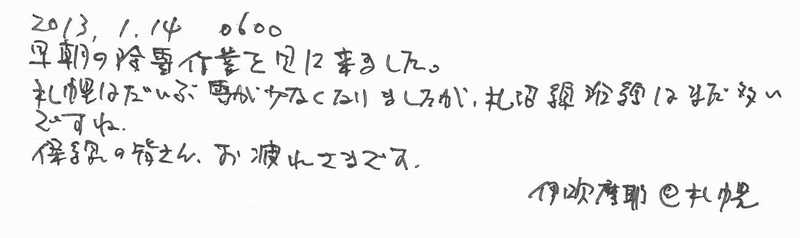 2013.1.14 0600
早朝の除雪作業を見に来ました。
札幌はだいぶ雪が少なくなりましたが、札沼線沿線はまだ多い
ですね.
保線の皆さん、お疲れさまです.
伊吹摩耶@札幌